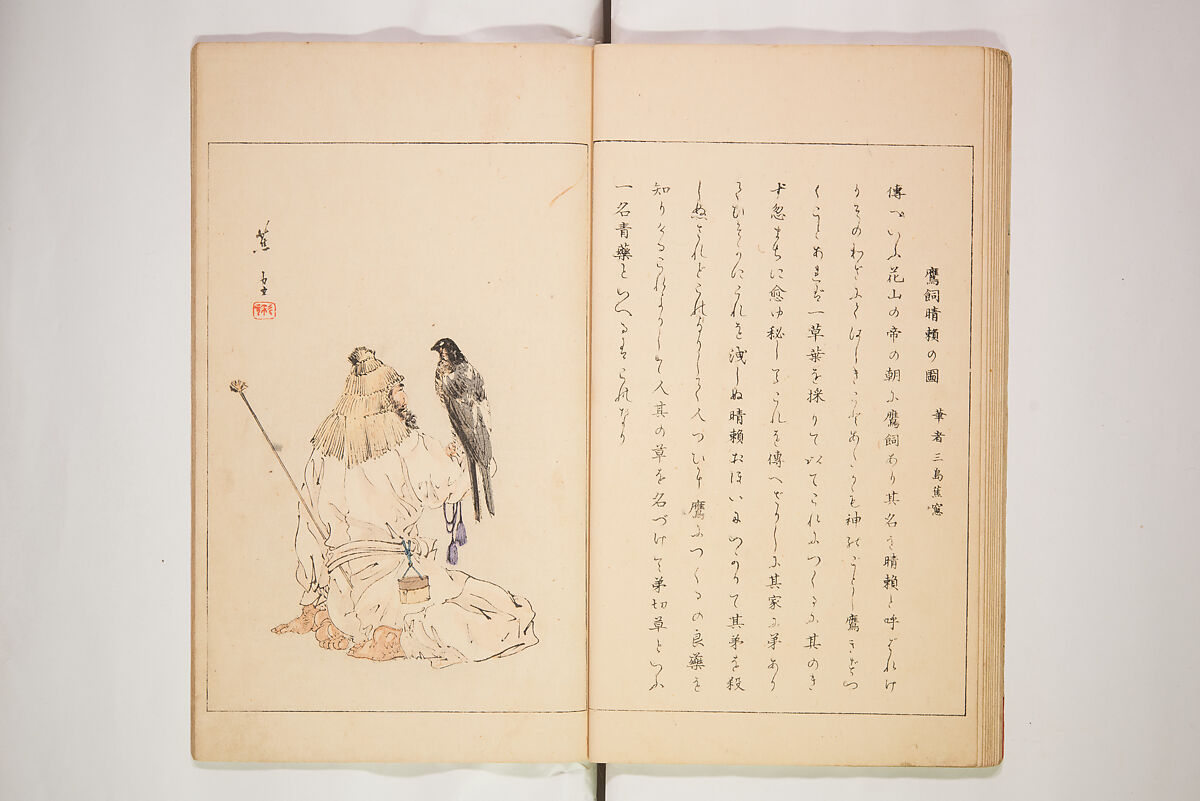 鷹飼晴頼の圖 筆者三島蕉窓
傳へいふ花山の帝の朝に鷹飼あり其名を晴頼と呼ばれけ
りそのわざにくはしきことあたかも神のごとし鷹きずつ
くことあれば一草葉を採りて以てこれにつくるに其のき
ず忽まちに愈ゆ秘してこれを傳へざりしに其家に弟あり
てひそかにこれを洩しぬ晴頼おほいにいかりて其弟を殺
しぬされどこれよりして人つひに鷹につくるの良藥を
知りけるこれよりして人其の草を名づけて弟切草といふ
一名青藥といへるはこれなり
蕉